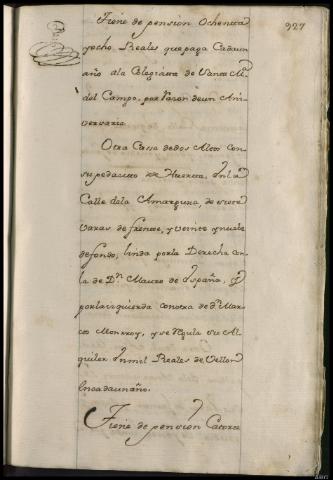 927
Tiene de pension Ochenta
yocho Reales que paga Cadaun
año ala Colegiata de Santa M.
del Campo, por razon deun Ani
versario.
Otra Casa dedos Altos con
supedacito de Huerta, enla
Calle dela Amargura, de siete
varas de frente, y veinte ynuebe
defondo, linda porla Derecha con
la de Dn. Mauro de España, y
porla izquierda conotra de dn. Mar
cos Monrroy, y se regula su Al
quiler enmil Reales de Vellon
encadaunaño.
Tiene de pension Catorce